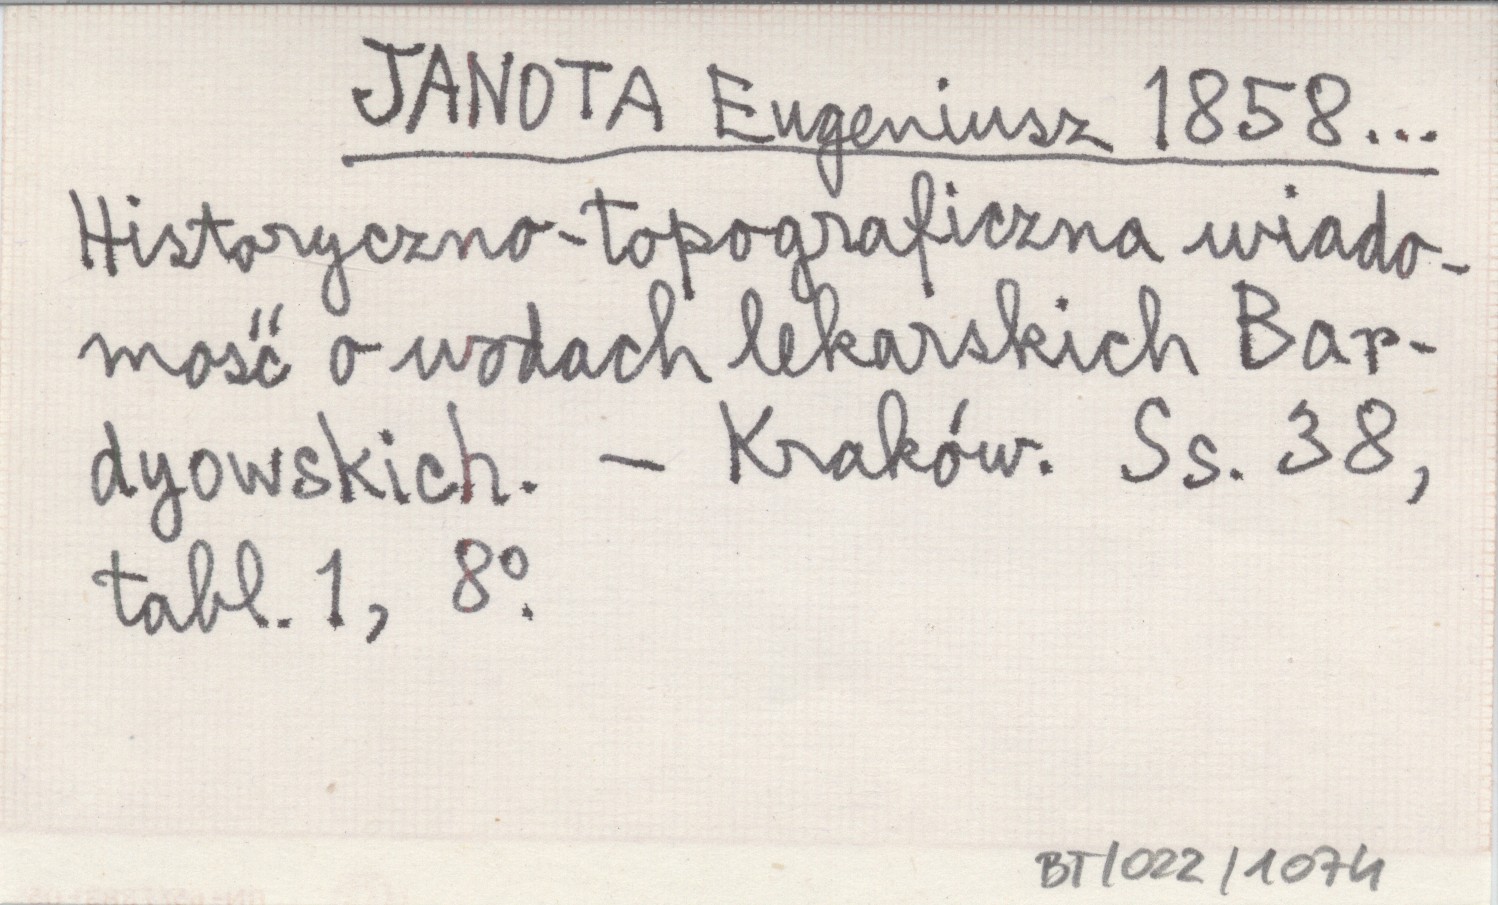 JANOTA Eugeniusz 1858...
Historyczno-topograficzna wiado-
mość o wodach lekarskich Bar-
dyowskich. — Kraków. Ss. 38,
tabl. 1, 8º.
BT/022/1074